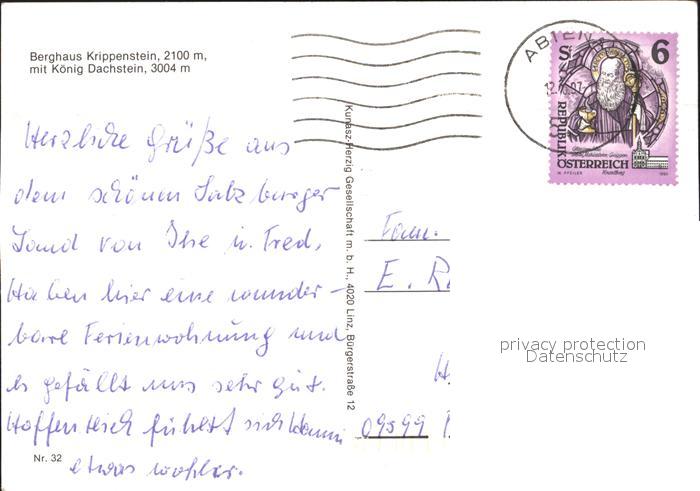 Berghaus Krippenstein, 2100 m,
mit König Dachstein, 3004 m
Herzliche Grüße aus
dem schönen Salzburger
Land von Ilse u. Fred.
Haben hier eine wunder-
bare Ferienwohnung und
es gefällt uns sehr gut.
Hoffentlich fühlst sich
etwas wohler.
Nr. 32
Kunasz-Herzig Gesellschaft m. b. H., 4020 Linz, Bürgerstraße 12
ABTEN
6
REPUBLIK
ÖSTERREICH
Fam.
E. R
H.
09599
privacy protection
Datenschutz